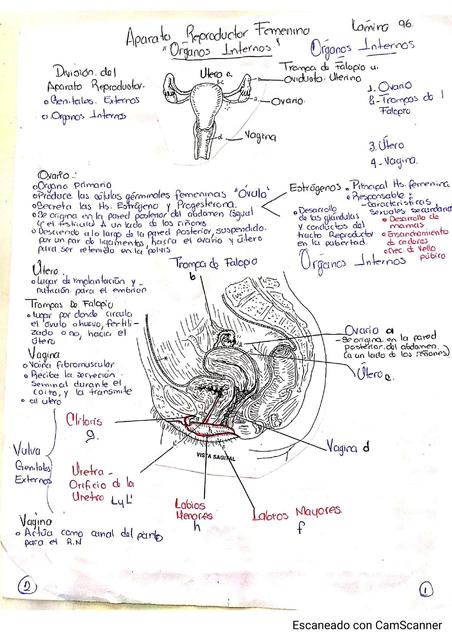 Aparato Reproductor Femenino
"Organos Internos"
Lámina 96
Órganos Internos
División del
Aparato Reproductor.
• Genitales Externos
• Organos Internos
Utero c.
Trompa de Falopio u.
Oviducto Uterino
Ovario
Vagina
1. Ovario
2- Trompas de
Falopio
3. Útero
4- Vagina.
Ovario:
• Órgano primario
• Produce las células germinales femeninas "Óvulo"
• Secreta las Hs. Estrógeno y Progesterona.
• Se origina en la pared posterior del abdomen (igual
q' el testículo) A un lado de los riñones
• Descienden a lo largo de la pared posterior, suspendido
por un par de ligamentos, hasta el ovario y útero
para ser retenido en la pelvis
Estrógenos
• Principal Hs. femenina
• Responsable
- Características
sexuales secundarias
• Desarrollo de
mamas
• Ensanchamiento
de caderas
• Crec. de Vello
púbico
• Desarrollo
de las glándulas
y conductos del
tracto Reproductor
en la pubertad.
Órganos Internos
Útero
• Lugar de implantación y
nutrición para el embrión
Trompas de Falopio
• Lugar por donde circula
el óvulo o huevo, fertili-
zado o no, hacia el
Útero
Vagina
• Vaina fibromuscular
• Recibe la secreción
seminal durante el
coito, y la transmite
• al utero
Trompa de Falopio
b
Ovario a
- Se origina en la pared
posterior del abdomen
(a un lado de los riñones)
Útero c.
Vagina d
VISTA SAGITAL
Vulva
Genitales
Externos
Clítoris
g.
Uretra -
Orificio de la
Uretra
Labios
Menores
h
Labios Mayores
f
Vagina
• Actúa como canal del parto
para el R.N
2
1
Escaneado con CamScanner